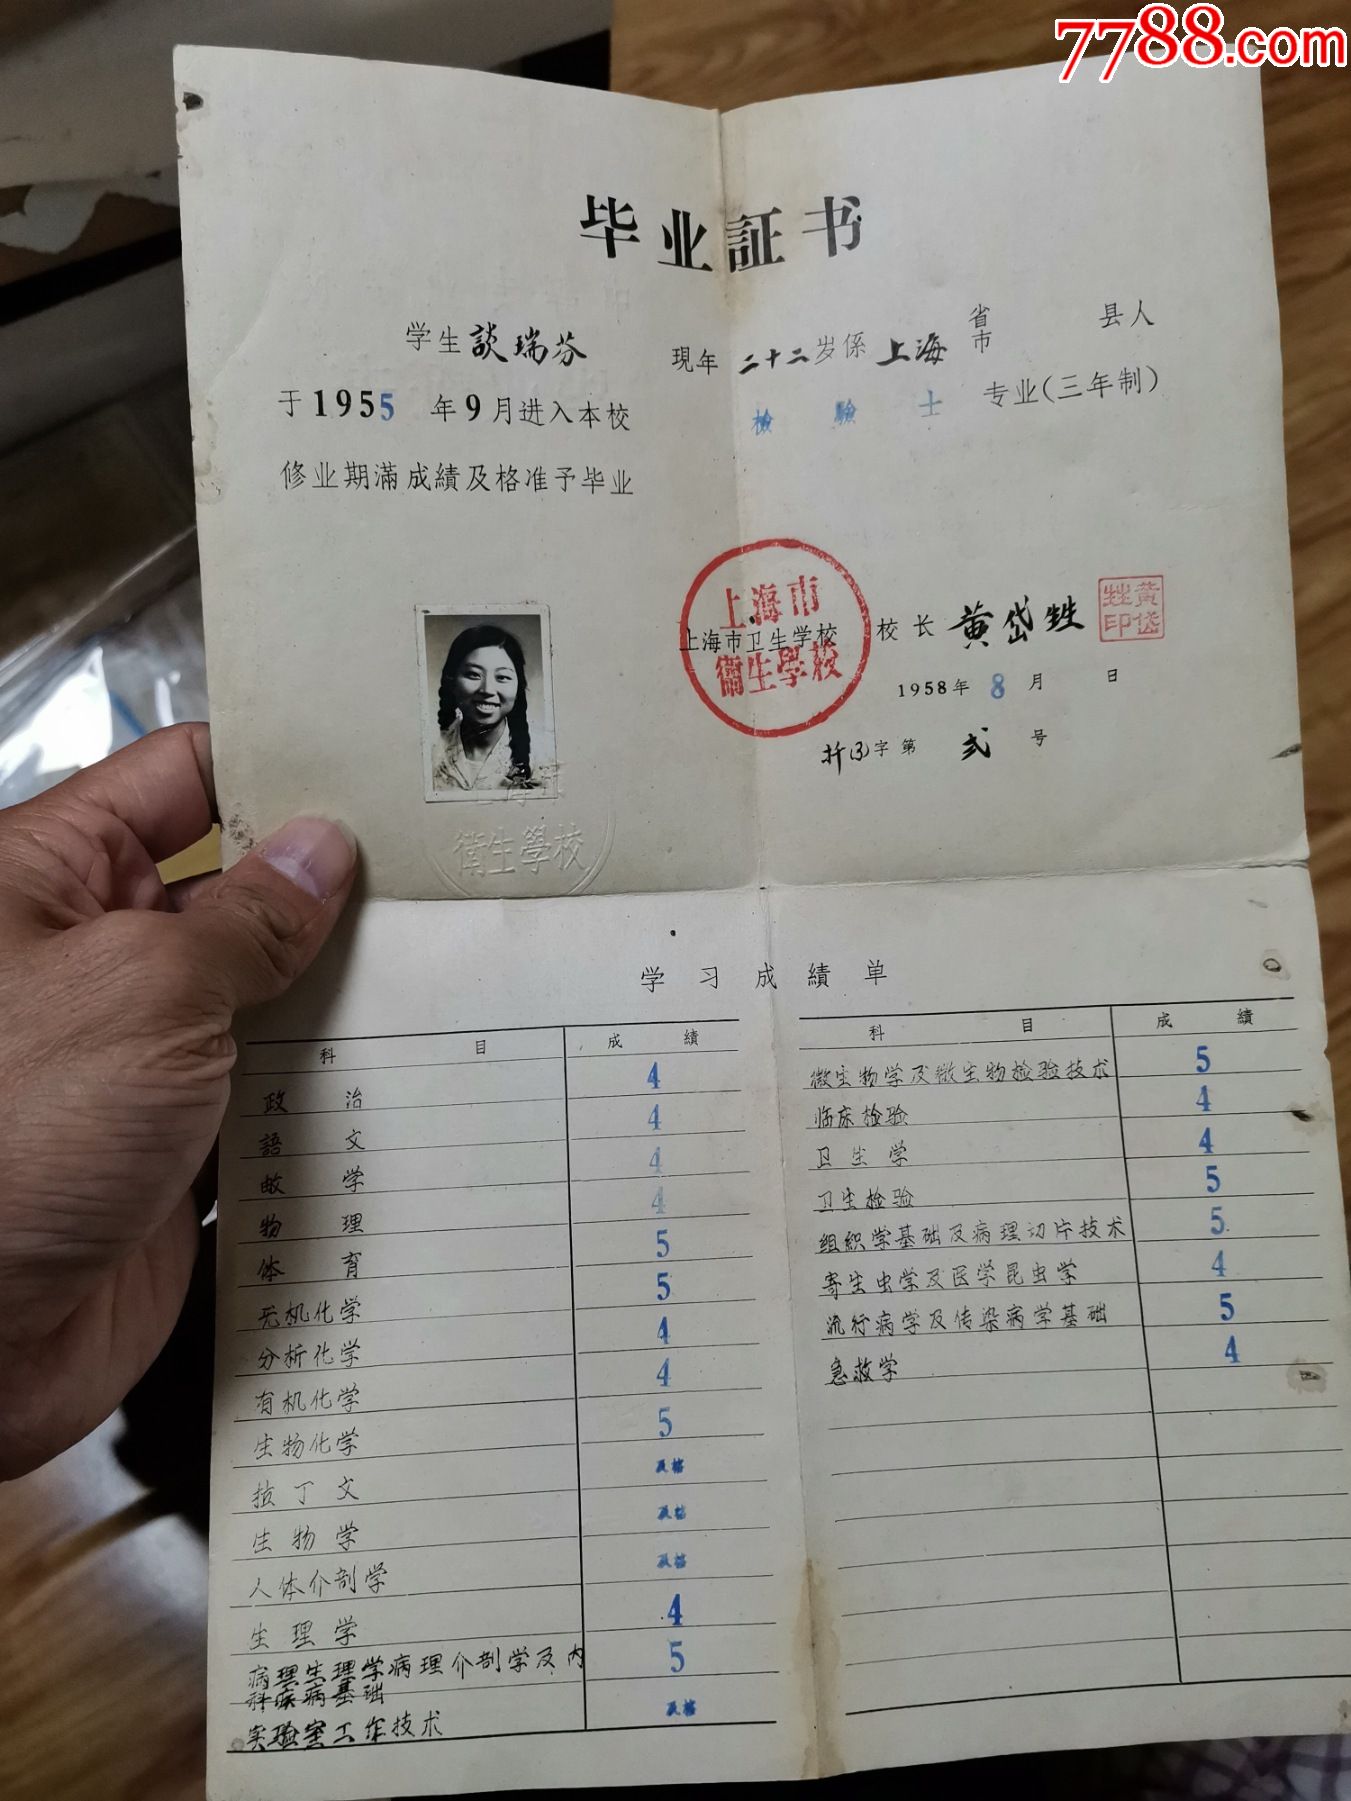 7788.com
毕业証书
学生談瑞芬 現年二十二岁係上海省市 县人
于1955年9月进入本校 檢驗士 专业(三年制)
修业期滿成績及格准予毕业
上海市
衞生學校
上海市卫生学校 校长 黄岱甡
黃岱甡印
1958年8月 日
字第 弍 号
衞生學校
学习成績单
科目 成績
政治 4
語文 4
数学 4
物理 4
体育 5
无机化学 5
分析化学 4
有机化学 4
生物化学 5
拉丁文 及格
生物学 及格
人体介剖学 及格
生理学 4
病理生理学病理介剖学及内
科疾病基础 5
实验室工作技术 及格
科目 成績
微生物学及微生物检验技术 5
临床检验 4
卫生学 4
卫生检验 5
组织学基础及病理切片技术 5
寄生虫学及医学昆虫学 4
流行病学及传染病学基础 5
急救学 4